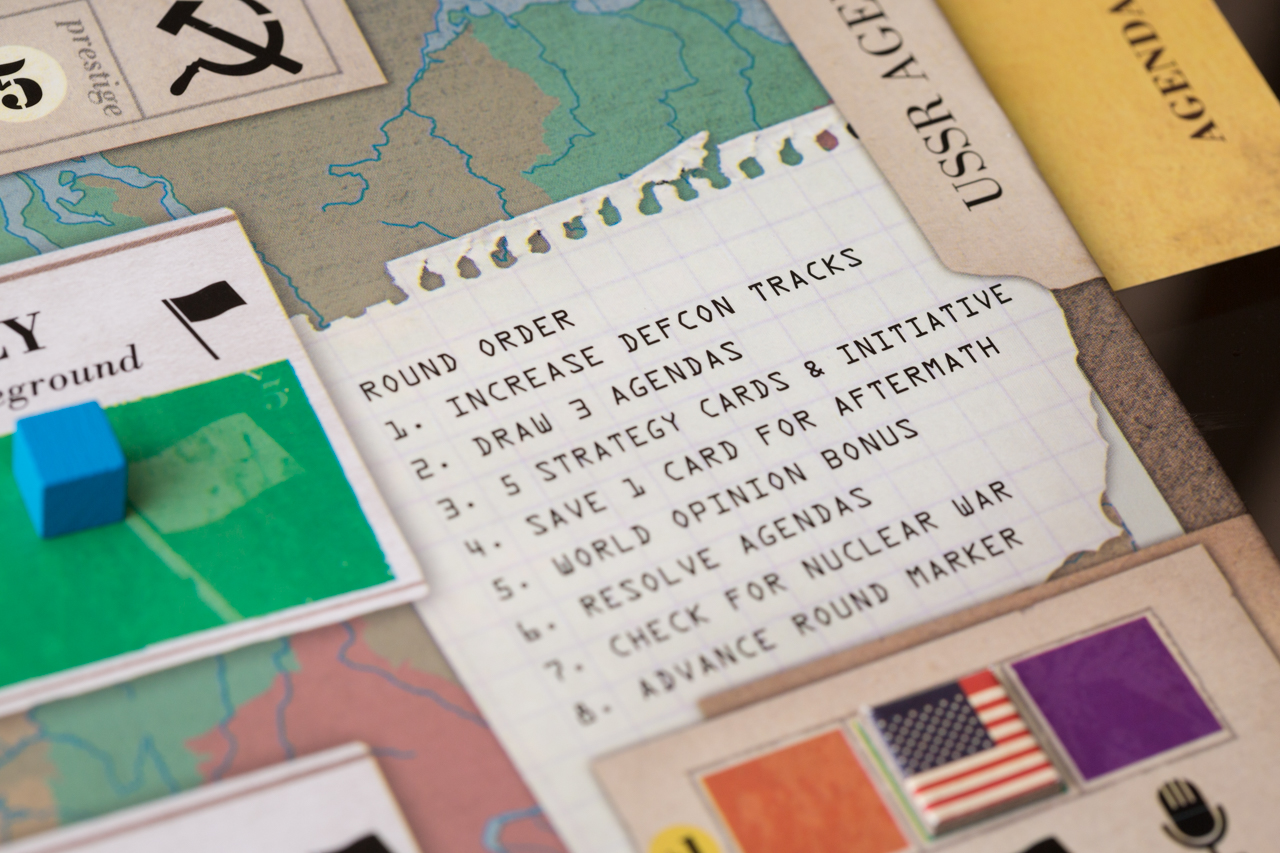 5
prestige
USSR AGE
AGENDA
LY
eground
15
ROUND ORDER
1. INCREASE DEFCON TRACKS
2. DRAW 3 AGENDAS
3. 5 STRATEGY CARDS & INITIATIVE
4. SAVE 1 CARD FOR AFTERMATH
5. WORLD OPINION BONUS
6. RESOLVE AGENDAS
7. CHECK FOR NUCLEAR WAR
8. ADVANCE ROUND MARKER
1